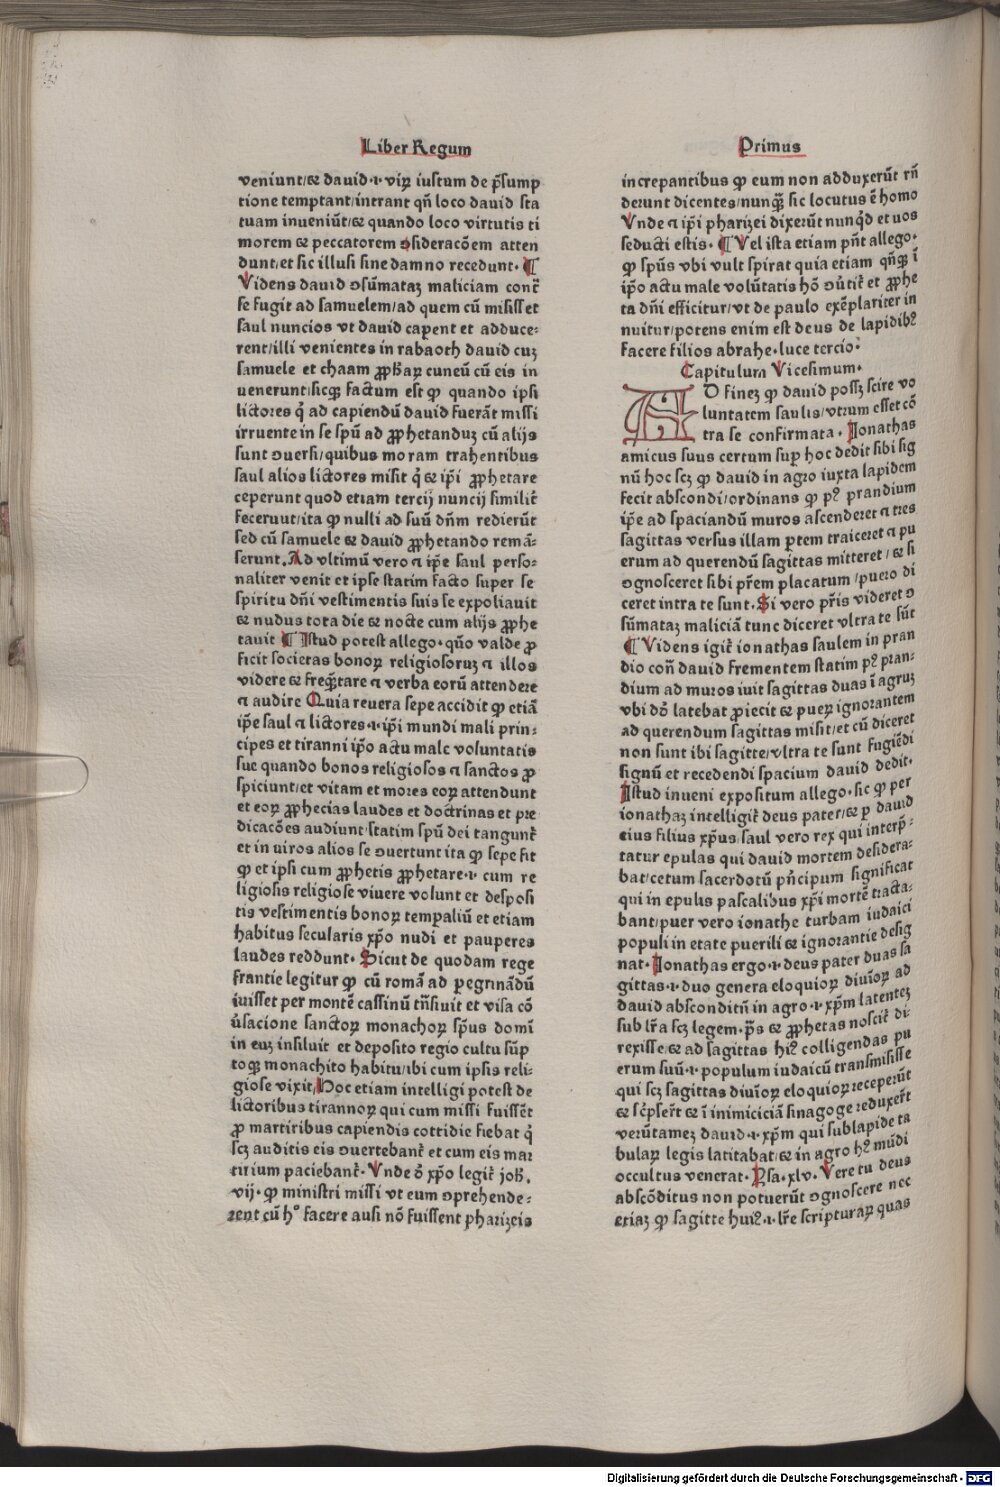 Liber Regum
veniunt/⁊ dauid·ı· viꝝ iustum de p̄sump
tione temptant/intrant qn̄ loco dauid sta
tuam inueniūt/⁊ quando loco virtutis ti
morem ⁊ peccatorem ↄsideracōem atten
dunt/et sic illusi sine damno recedunt· ¶
Videns dauid ↄsūmataꝫ maliciam cont̄
se fugit ad samuelem/ad quem cū misisset
saul nuncios vt dauid caperent et adduce⸗
rent/illi venientes in rabaoth dauid cuꝫ
samuele et chaam ꝓphaꝝ cuneū cū eis in
uenerunt/sicqꝫ factum est ꝙ quando ipsi
lictores q̇ ad capiendū dauid fuerāt missi
irruente in se spū ad ꝓphetanduꝫ cū alijs
sunt ↄuersi/quibus moram trahentibus
saul alios lictores misit q̇ ⁊ ip̄i ꝓphetare
ceperunt quod etiam tercij nuncij similit̄
feceruut/ita ꝙ nulli ad suū dn̄m redierūt
sed cū samuele ⁊ dauid ꝓphetando remā⸗
serunt. Ad vltimū vero ⁊ ip̄e saul perso⸗
naliter venit et ipse statim facto super se
spiritu dn̄i vestimentis suis se expoliauit
⁊ nudus tota die ⁊ nocte cum alijs ꝓphe
tauit ¶ Istud potest allego· quō valde ꝓ
ficit societas bonoꝝ religiosoruꝫ ⁊ illos
videre ⁊ freqn̄tare ⁊ verba eorū attendere
⁊ audire Quia reuera sepe accidit ꝙ etiā
ip̄e saul ⁊ lictores·ı· ip̄i mundi mali prin⸗
cipes et tiranni ip̄o actu male voluntatis
sue quando bonos religiosos ⁊ sanctos ꝓ
spiciunt/et vitam et mores eoꝝ attendunt
et eoꝝ ꝓphecias laudes et doctrinas et pre
dicacōes audiunt/statim spū dei tangunt̄
et in uiros alios se ↄuertunt ita ꝙ sepe fit
ꝙ et ipsi cum ꝓphetis ꝓphetare·ı· cum re
ligiosis religiose viuere volunt et desposi
tis vestimentis bonoꝝ temꝑaliū et etiam
habitus secularis xp̄o nudi et pauperes
laudes reddunt· Sicut de quodam rege
frantie legitur ꝙ cū romā ad ꝑegrinādū
iuisset per montē cassinū trn̄siuit et visa cō
ūsacione sanctoꝝ monachoꝝ sp̄us domī
in euꝫ insiluit et deposito regio cultu sūp
toqꝫ monachito habitu/ibi cum ipsis reli⸗
giose vixit/Hoc etiam intelligi potest de
lictoribus tirannoꝝ qui cum missi fuissēt
ꝓ martiribus capiendis cottidie fiebat q̇
scꝫ auditis eis ↄuertebant̄ et cum eis mar
tirium paciebant̄· Vnde ō xp̄o legit̄ joh.
vij· ꝙ ministri missi vt eum ↄprehende⸗
rent cū hͦ facere ausi nō fuissent pharizeis
Primus
increpantibus ꝙ eum non adduxerūt rn̄
derunt dicentes/nunqꝫ sic locutus ē homo
Vnde ⁊ ip̄i pharizei dixerūt nunqd et uos
seducti estis· ¶ Vel ista etiam pn̄t allego·
ꝙ sp̄us vbi vult spirat quia etiam qn̄qꝫ ī
ip̄o actu male volūtatis hō ↄūtit̄ et ꝓphe
ta dn̄i efficitur/vt de paulo exēplariter in
nuitur/potens enim est deus de lapidibꝫ
facere filios abrahe·luce tercio·
Capitulum Vicesimum·
AD finez ꝙ dauid possꝫ scire vo
luntatem saulis/vtrum esset cō
tra se confirmata· Ionathas
amicus suus certum suꝑ hoc dedit sibi sig
nū hoc scꝫ ꝙ dauid in agro iuxta lapidem
fecit abscondi/ordinans ꝙ pꝰ prandium
ip̄e ad spaciandū muros ascenderet ⁊ tres
sagittas versus illam ꝑtem traiceret ⁊ pu
erum ad querendū sagittas mitteret/⁊ si
ↄgnosceret sibi pr̄em placatum/puero di
ceret intra te sunt·Si vero pr̄is videret ↄ
sūmataꝫ maliciā tunc diceret vltra te sūt
¶ Videns igit̄ ionathas saulem in pran
dio con̄ dauid frementem statim pꝰ pran⸗
dium ad muros iuit sagittas duas ī agruꝫ
vbi dō latebat ꝓiecit ⁊ pueꝝ ignorantem
ad querendum sagittas misit/et cū diceret
non sunt ibi sagitte/vltra te sunt fugiēdi
signū et recedendi spacium dauid dedit·
Istud inueni expositum allego·sic ꝙ per
ionathaꝫ intelligit̄ deus pater/⁊ ꝑ dauid
eius filius xp̄us/saul vero rex qui interp̄⸗
tatur epulas qui dauid mortem desidera⸗
bat/cetum sacerdotū pn̄cipum significat
qui in epulis pascalibus xp̄i mortē tracta⸗
bant/puer vero ionathe turbam iudaici
populi in etate puerili ⁊ ignorantie desig
nat· Ionathas ergo·ı·deus pater duas sa
gittas·ı·duo genera eloquioꝝ diuīoꝝ ad
dauid absconditū in agro·ı·xp̄m latenteꝫ
sub lr̄a scꝫ legem·p̄s ⁊ ꝓphetas noscit̄ di⸗
rexisse/⁊ ad sagittas hiꝰ colligendas pu
erum suū·ı·populum iudaicū transmisisse
qui scꝫ sagittas diuīoꝝ eloquioꝝ receperūt
⁊ sc̄pser̄t ⁊ ī inimiciciā sinagoge reduxer̄t
verūtameꝫ dauid·ı·xp̄m qui sub lapide ta
bulaꝝ legis latitabat/⁊ in agro hꝰ mūdi
occultus venerat· Psa·xlv· Vere tu deus
abscōditus non potuerūt ↄgnoscere nec
etiaꝫ ꝙ sagitte huiꝰ·ı·lr̄e scripturaꝝ quas
Digitalisierung gefördert durch die Deutsche Forschungsgemeinschaft - DFG